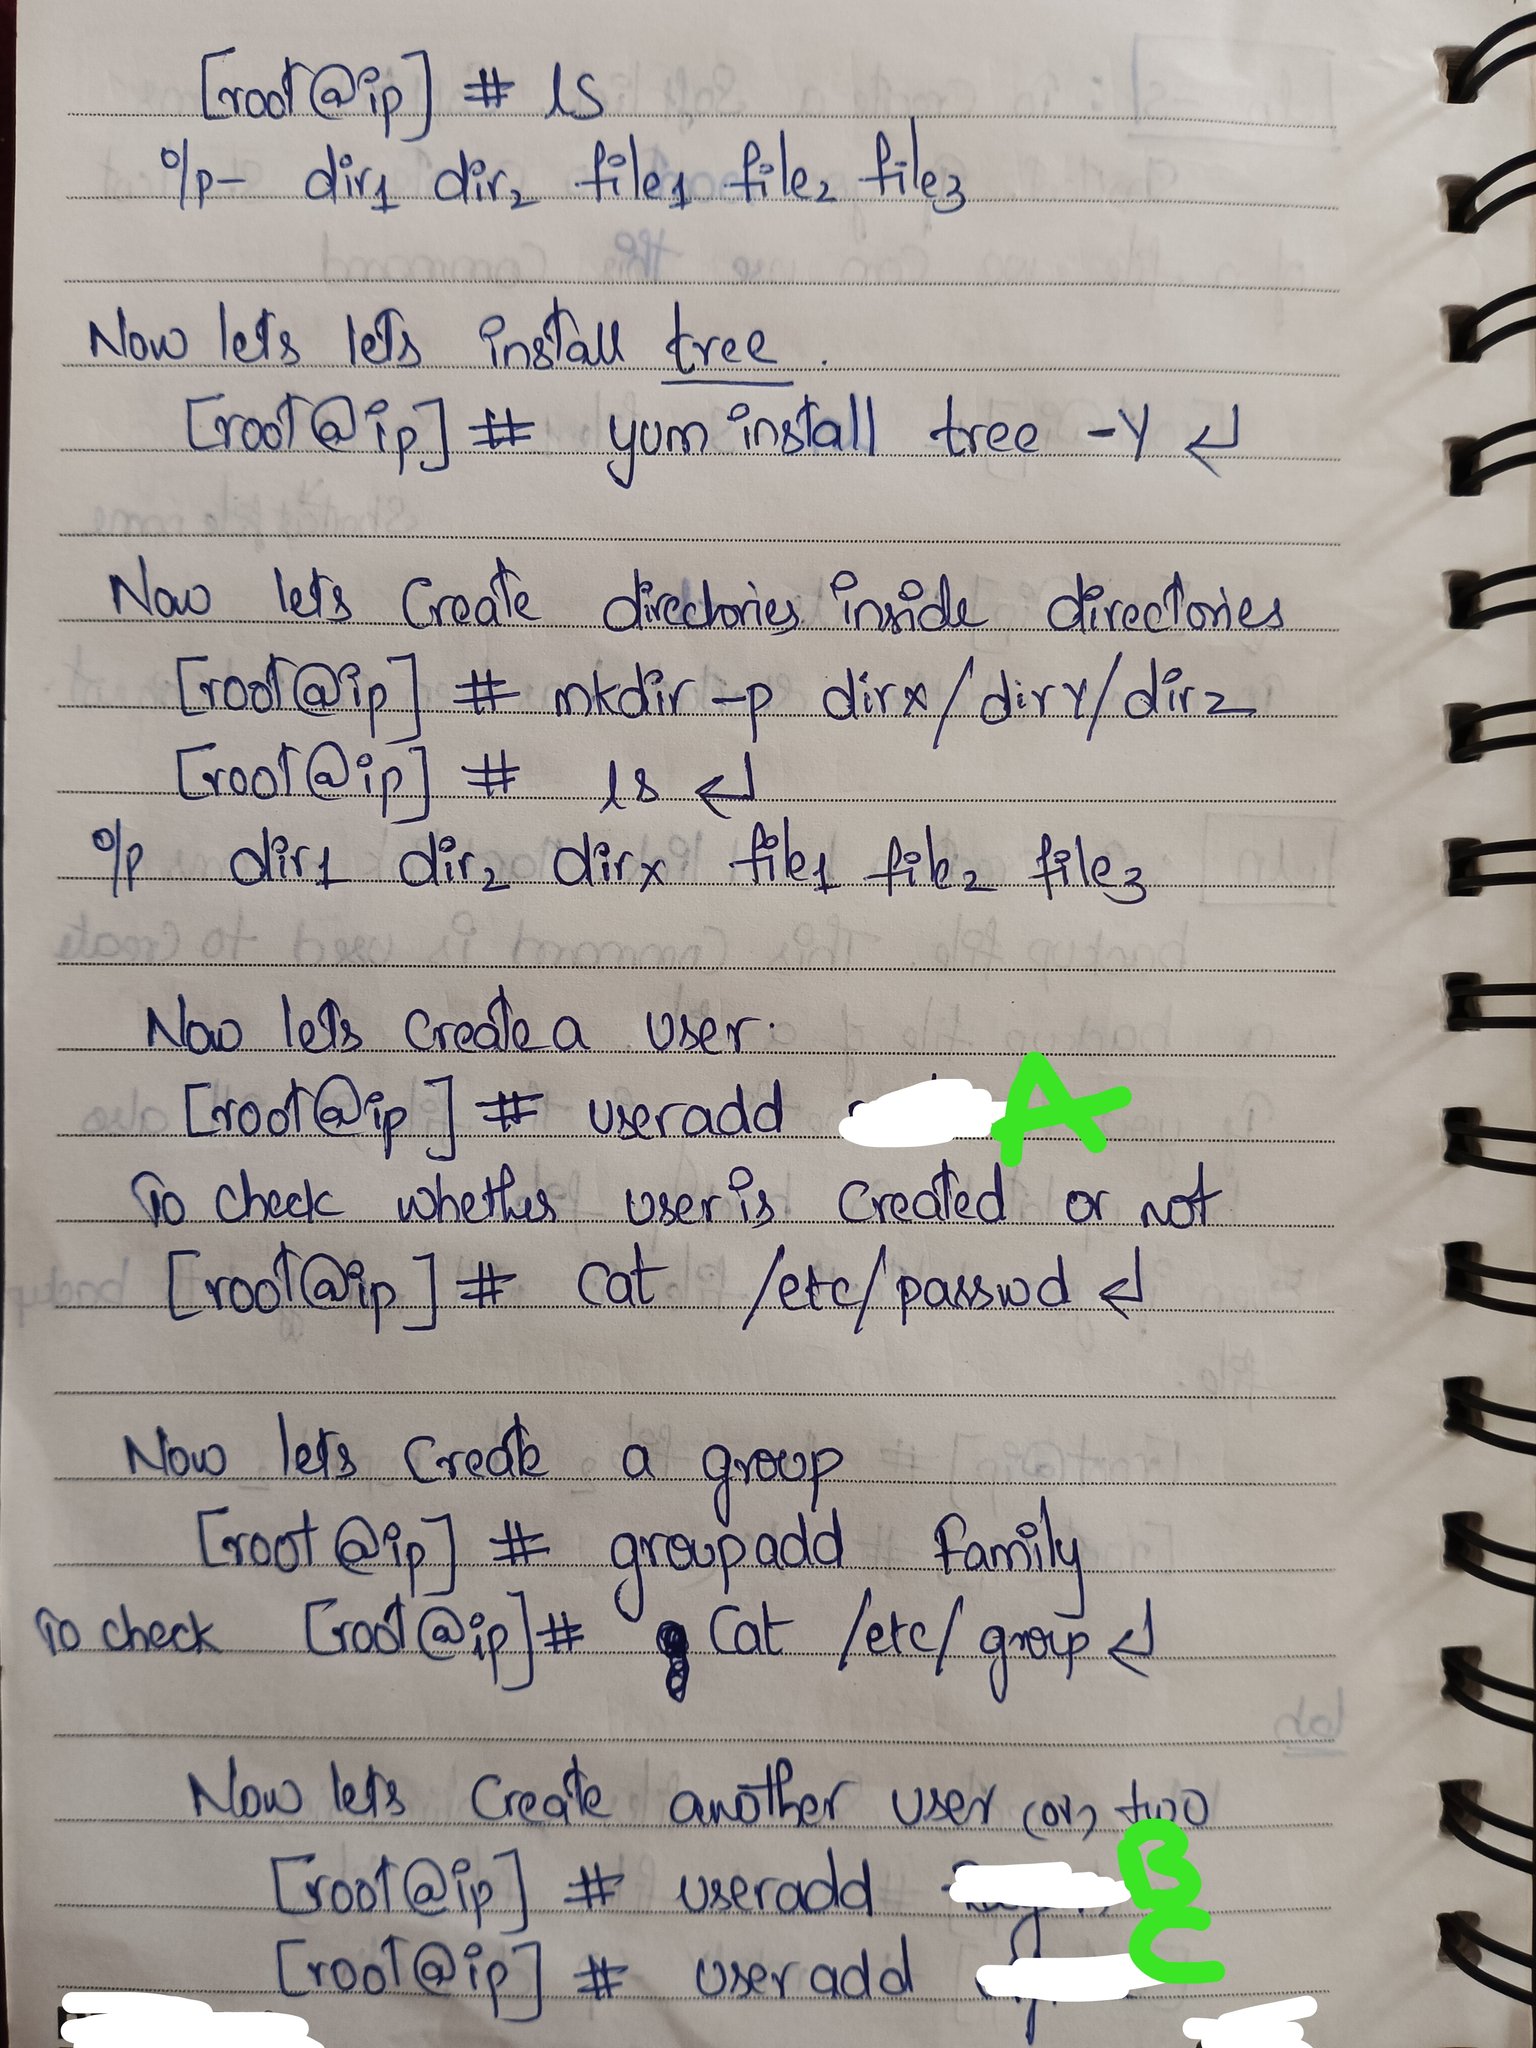 [root@ip] # ls
o/p- dir1 dir2 file1 file2 file3
Now lets lets install tree.
[root@ip] # yum install tree -y ↵
Now lets Create directories inside directories
[root@ip] # mkdir -p dirx/dirY/dirz
[root@ip] # ls ↵
o/p dir1 dir2 dirx file1 file2 file3
Now lets Create a user.
[root@ip] # useradd A
To check whether user is Created or not
[root@ip] # Cat /etc/passwd ↵
Now lets Create a group
[root@ip] # groupadd Family
To check [root@ip] # Cat /etc/group ↵
Now lets Create another user (or) two
[root@ip] # useradd B
[root@ip] # useradd C